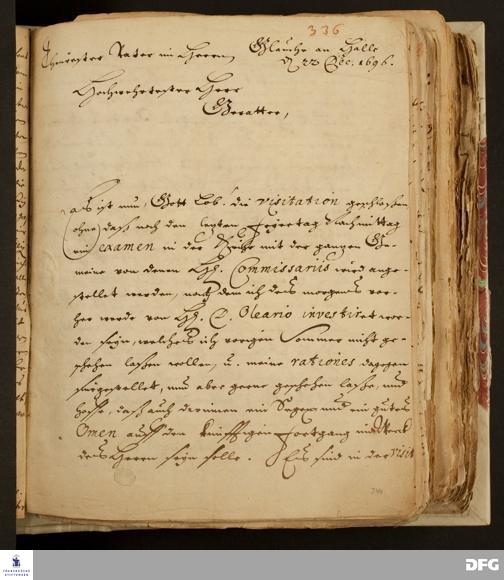 336
Theurester Vater im Herrn, Glaucha an Halle
d. 22 Dec. 1696.
Hochwehrtester Herr
Gevatter,
Es ist nun, Gott Lob! die visitation geschloßen
(ohne daß noch den letzten Feyertag Nachmittag
ein examen in der Kirche mit der gantzen Ge-
meine von denen HH. Commissariis wird ange-
stellet werden, nach dem ich des morgens vor-
her werde von Hh. D. Oleario investiret wor-
den seyn, welches ich vorigen Sommer nicht ge-
schehen laßen wollen, u. meine rationes dagegen
fürgestellet, nun aber gerne geschehen laße, und
hoffe, daß auch darinnen ein Segen und ein gutes
Omen auff den künfftigen Fortgang im Werck
des Herrn seyn solle. Es sind in der visit
344
FRANCKESCHE
STIFTUNGEN
DFG